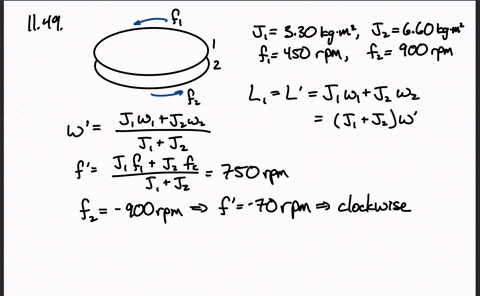 11.49.
f₁
1
2
f₂
J₁ = 3.30 kg·m², J₂ = 6.60 kg·m²
f₁ = 450 rpm, f₂ = 900 rpm
L₁ = L' = J₁ω₁ + J₂ω₂
= (J₁ + J₂)ω'
ω' = (J₁ω₁ + J₂ω₂) / (J₁ + J₂)
f' = (J₁f₁ + J₂f₂) / (J₁ + J₂) = 750 rpm
f₂ = -900 rpm ⇒ f' = -70 rpm ⇒ clockwise